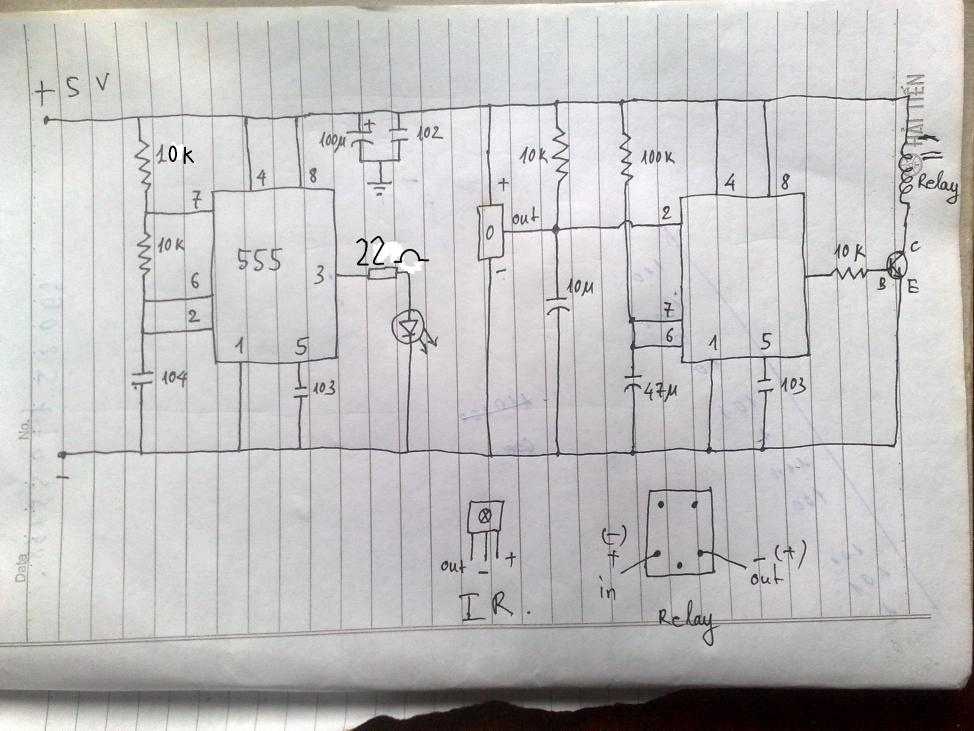 + 5 V
HẢI TIẾN
10k
100µ
+
102
10K
100K
4
8
4
8
Relay
7
+
out
2
10K
555
0
22
6
3
10K
C
-
B
E
2
10µ
7
6
1
5
1
5
104
103
47µ
103
-
No.
Date
out
-
+
I R.
(-)
+
in
- (+)
out
Relay